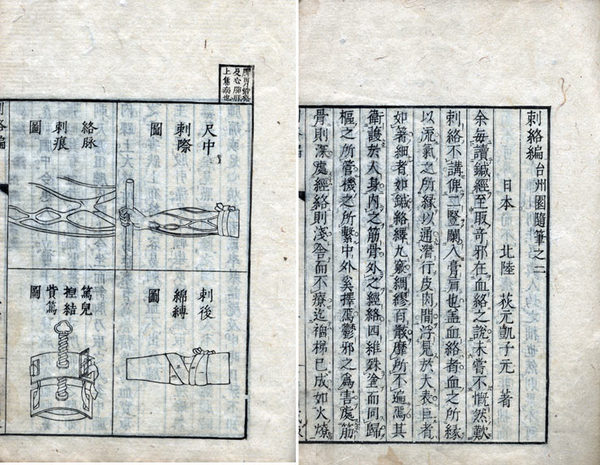 刺絡編 台州園隨筆之二
日本 北陸 荻元凱子元 著
余每讀鍼經至取奇邪在血絡之說未嘗不慨然歎
刺絡不講俾二豎願入膏肓也蓋血絡者血之所緣
以流氣之所緣以通潛行皮肉間浮見於大表巨者
如箸細者如鍼絡繹九竅綢繆百骸靡所不遍焉其
衛護於人身內之筋骨外之經絡四維殊塗而同歸
樞之所管機之所繫中外奚擇焉鬱邪之為害處筋
骨則深處經絡則淺舍而不療迨禍梯已成如火燎
上焦病也
尺中
刺際
圖
絡脉
刺痕
圖
刺後
綿縛
圖
篤兒
裡結
貲篤
圖